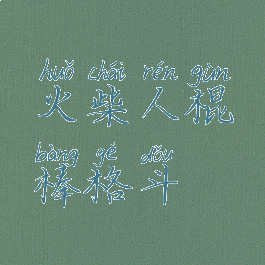 huǒ chái rén gùn
火柴人棍
bàng gé dòu
棒格斗